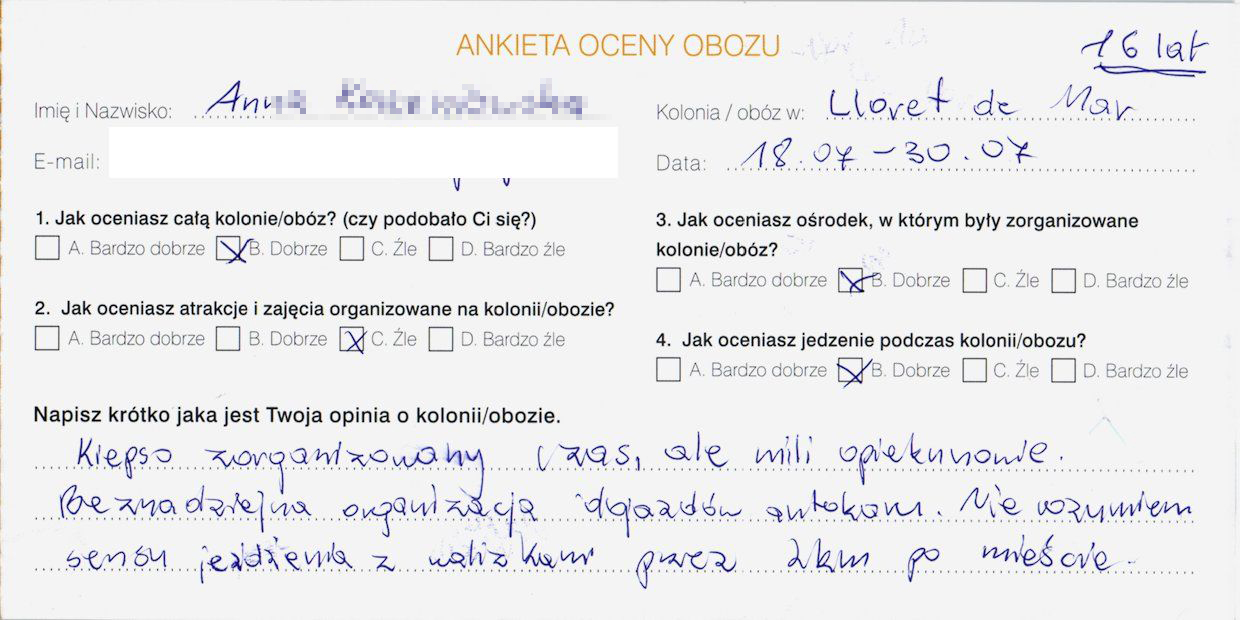 ANKIETA OCENY OBOZU
16 lat
Imię i Nazwisko: Anna
Kolonia / obóz w: Lloret de Mar
E-mail:
Data: 18.07 – 30.07
1. Jak oceniasz całą kolonie/obóz? (czy podobało Ci się?)
A. Bardzo dobrze B. Dobrze C. Źle D. Bardzo źle
2. Jak oceniasz atrakcje i zajęcia organizowane na kolonii/obozie?
A. Bardzo dobrze B. Dobrze C. Źle D. Bardzo źle
3. Jak oceniasz ośrodek, w którym były zorganizowane
kolonie/obóz?
A. Bardzo dobrze B. Dobrze C. Źle D. Bardzo źle
4. Jak oceniasz jedzenie podczas kolonii/obozu?
A. Bardzo dobrze B. Dobrze C. Źle D. Bardzo źle
Napisz krótko jaka jest Twoja opinia o kolonii/obozie.
Kiepso zorganizowany czas, ale mili opiekunowie.
Beznadziejna organizacja dojazdów autokaru. Nie rozumiem
sensu jeżdżenia z walizkami przez 2km po mieście.